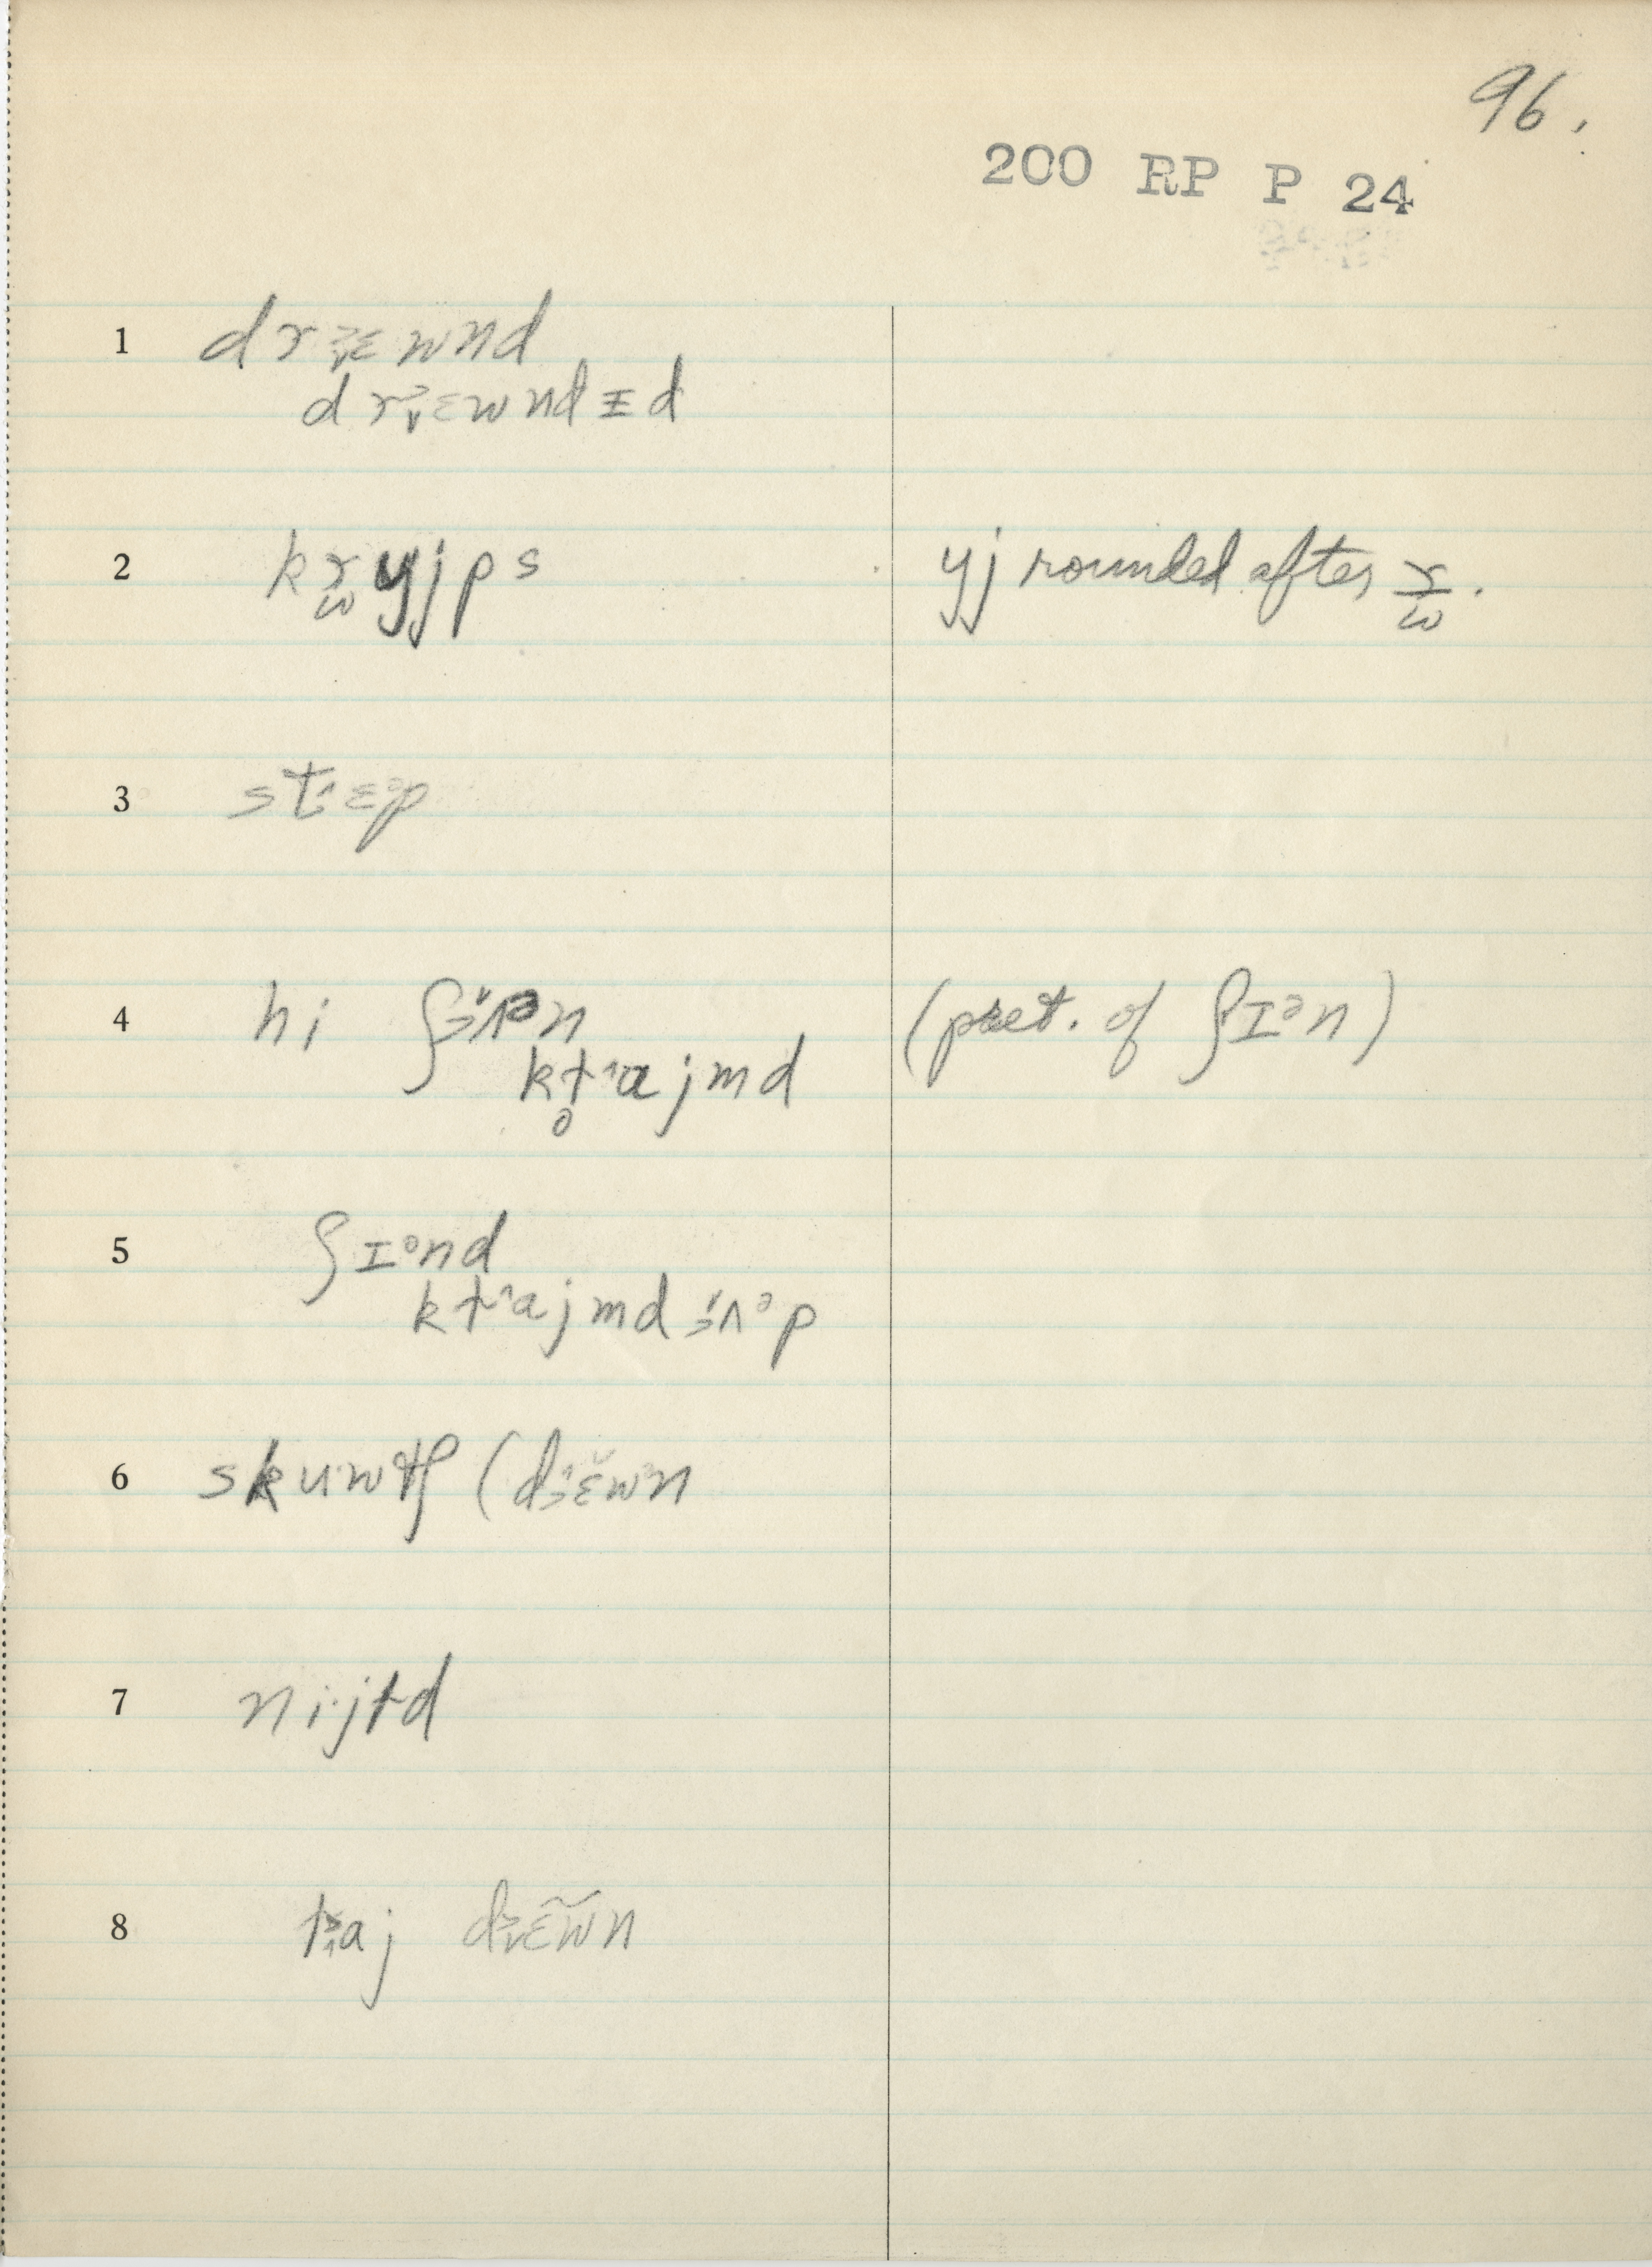 96.
200 RP P 24
1 drɛwnd
drɛwndɪd
2 kryjps yj rounded after r/w.
3 stɛᵊp
4 hi ʃʌᵊn (pret. of ʃɪᵊn)
kt̥ajmd
5 ʃɪᵊnd
ktajmd ʌᵊp
6 skuwtʃ (dɛ̆wn
7 nijtd
8 taj dɛ̃w̃n